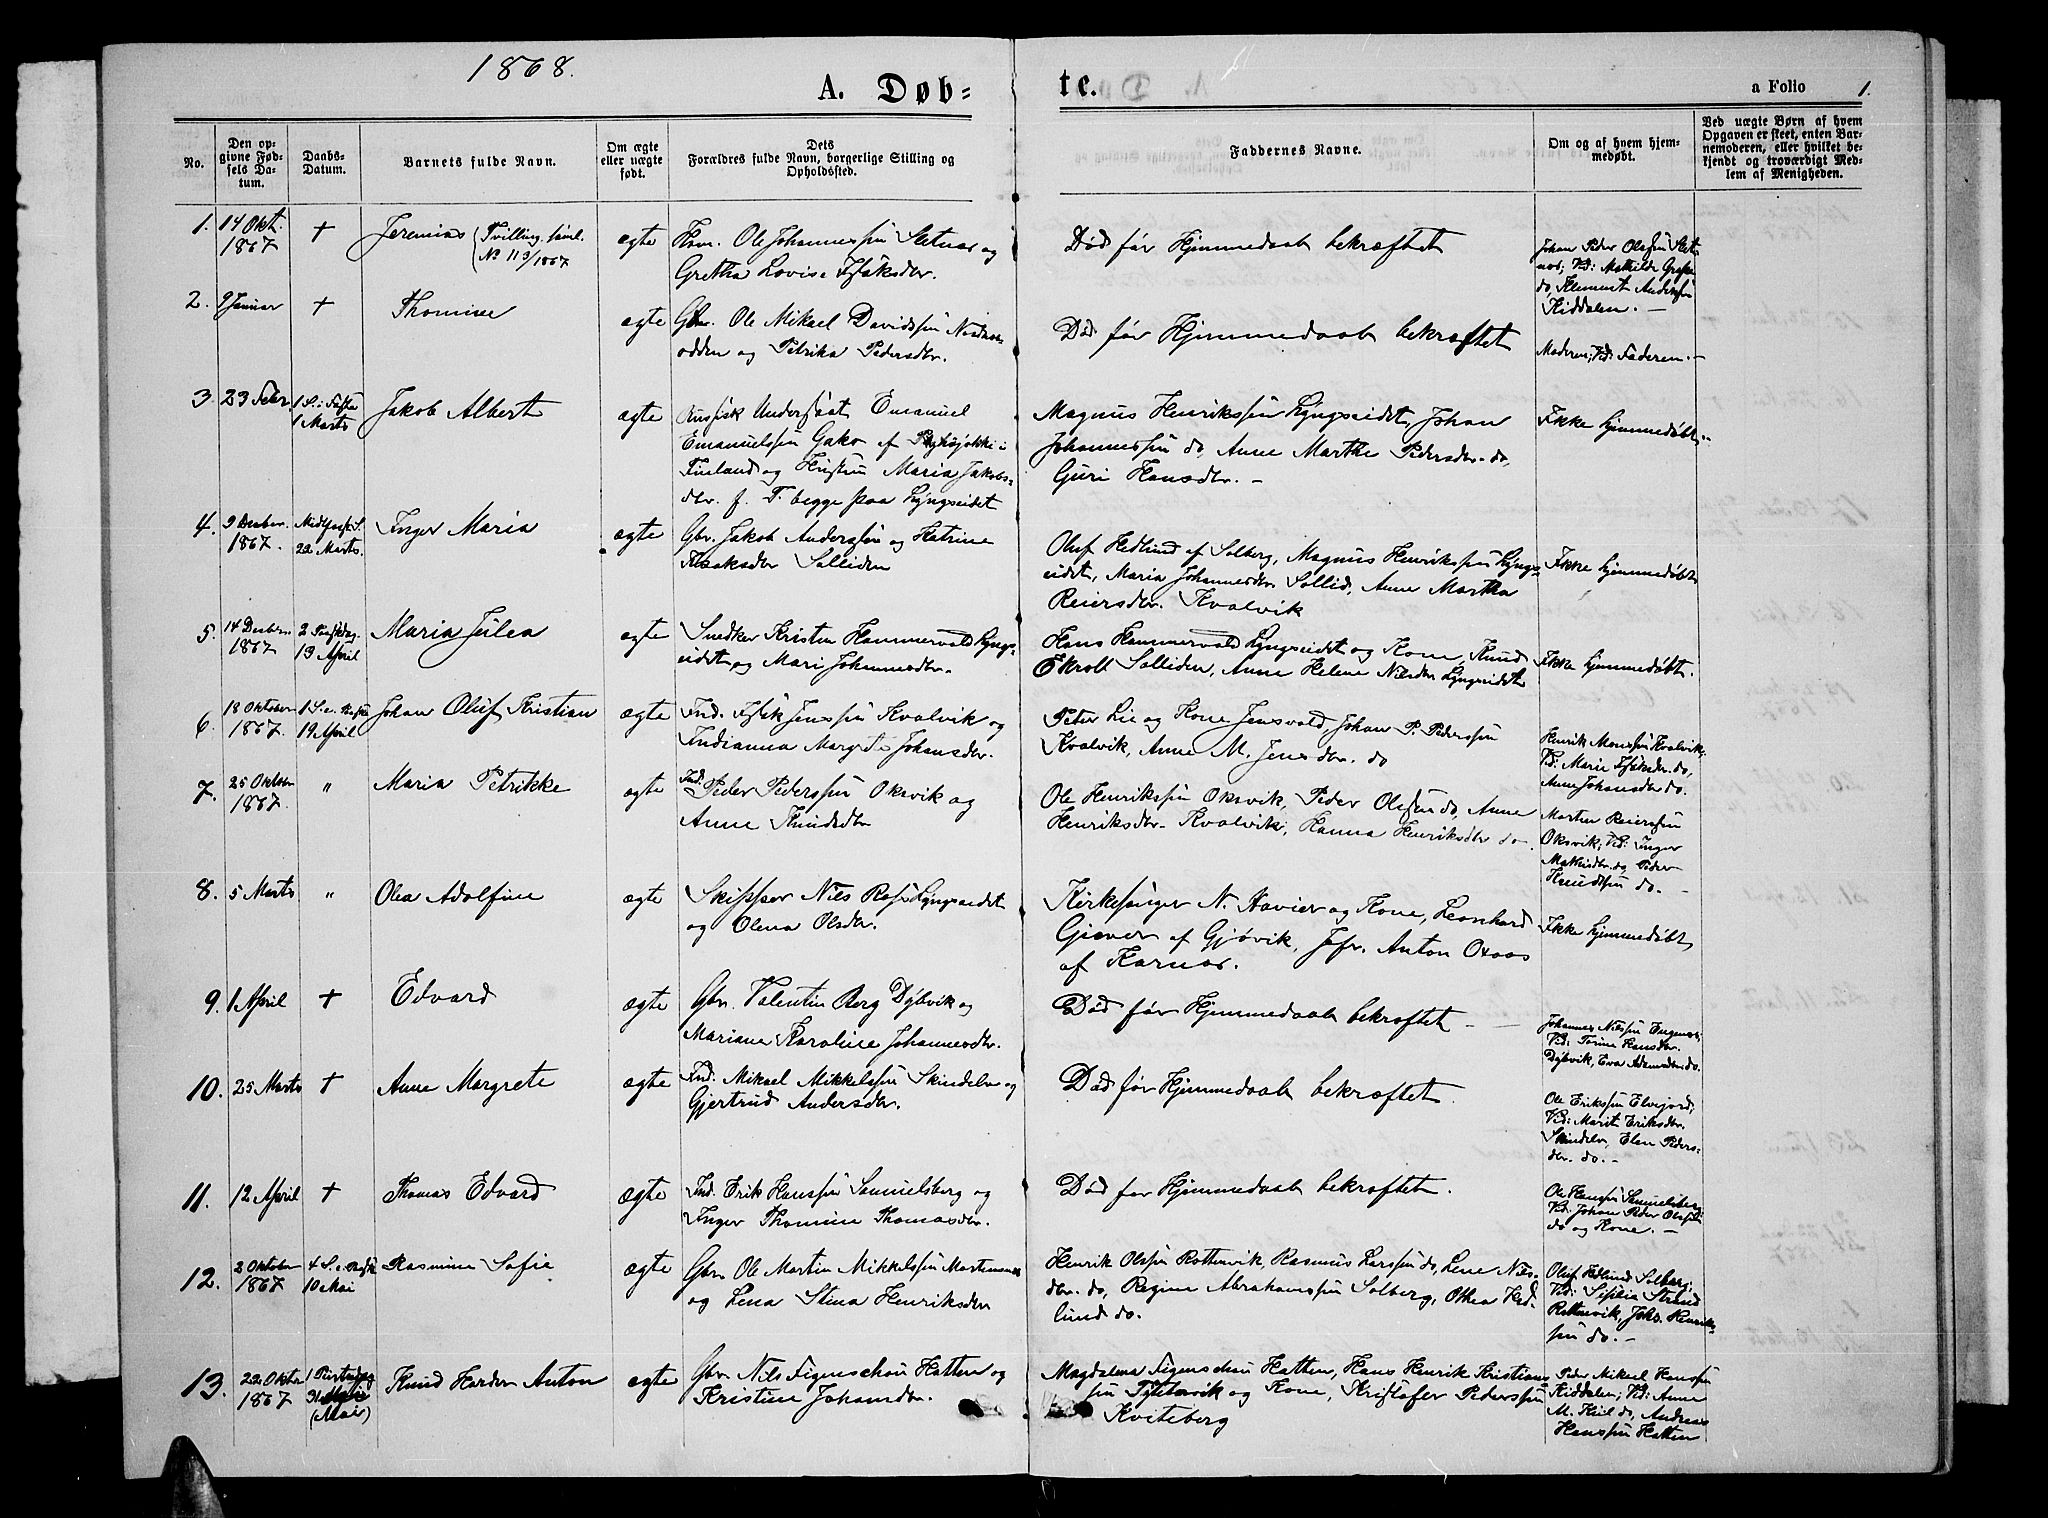 1868.
A. Døb=
te.
a Folio 1.
No.
Den op-
givne Fød-
sels Da-
tum.
Daabs-
Datum.
Barnets fulde Navn.
Om ægte
eller uægte
født.
Dets
Forældres fulde Navn, borgerlige Stilling og
Opholdssted.
Faddernes Navne.
Om og af hvem hjem-
medøbt.
Ved uægte Børn af hvem
Opgaven er skeet, enten Bar-
nemoderen, eller hvilket be-
kjendt og troværdigt Med-
lem af Menigheden.
1. 14 Okt.
1867
†
Jeremias (Tvilling, saml.
No 113/1867
ægte
Ole Johannessen Sletnes og
Gretha Lovise Isaksdtr.
Død før Hjemmedaab bekræftet
Johan Peder Olssen Slet-
nes; Vid: Mathilde
do, Klement Anderssen
Kiddalen. –
2. 9 Januar
†
Thomine
ægte
Gbr. Ole Mikael Davidssen Nordnes-
odden og Petrika Pedersdtr.
Død før Hjemmedaab bekræftet
Moderen; Vid: Faderen. –
3. 23 Febr.
1 S. i Faste
1 Marts
Jakob Albert
ægte
Russisk Undersaat Emanuel
Emanuelssen Gako af
Finland og Hustru Maria Jakobs-
dtr. f. T. begge paa Lyngseidet
Magnus Henrikssen Lyngseidet, Johan
Johannessen do, Anne Marthe Pedersdtr. do,
Guri Hansdtr. –
Ikke hjemmedøbt. –
4. 9 Decbr.
1867.
Midfaste S.
22 Marts.
Inger Maria
ægte
Gbr. Jakob Anderssen og Katrine
Isaksdtr Solliden
Oluf Hedlund af Solberg, Magnus Henrikssen Lyngs-
eidet, Maria Johannesdtr Sollid, Anne Martha
Reiersdtr. Kvalvik
Ikke hjemmedøbt
5. 14 Decbr.
1867
2 Paaskedag.
13 April
Maria Julea
ægte
Snedker Kristen Hammervold Lyngs-
eidet og Mari Johannesdtr.
Hans Hammervold Lyngseidet og Kone, Knud
Ekroll Solliden, Anne Helene Nilsdtr Lyngseidet
Ikke hjemmedøbt.
6. 18 Oktober
1867.
1 S. e. Paaske
19 April
Johan Oluf Kristian
ægte
Ind. Isak Jenssen Kvalvik og
Indianna Margrete Johansdtr.
Peter Lie og Kone Jensvold, Johan P. Pederssen
Kvalvik, Anne M. Jensdtr. do
Henrik Monssen Kvalvik;
Vid: Marie Isaksdtr. do,
Anne Johansdtr do.
7. 25 Oktbr
1867.
"
Maria Petrikke
ægte
Ind: Peder Pederssen Oksvik og
Anne Knudsdtr
Ole Henrikssen Oksvik, Peder Olssen do, Anne
Henriksdtr. Kvalvik, Hanna Henriksdtr do.
Morten Reierssen
Oksvik; Vid: Inger
Mathisdtr. do, Peder
Knudssen do. –
8. 5 Marts
"
Olea Adolfine
ægte
Skipper Nils Ross Lyngseidet
og Olena Olsdtr.
Kirkesanger N. Xavier og Kone, Leonhard
Giæver af Gjøvik, Jfr. Anton Oxaas
af Karnes.
Ikke hjemmedøbt
9. 1 April
†
Edvard
ægte
Gbr. Valentin Berg Dybvik og
Mariane Karoline Johannesdtr.
Død før Hjemmedaab bekræftet –
Johannes Nilssen Engenes;
Vid: Trine Hansdtr.
Dybvik, Eva Adamsdtr. do.
10. 25 Marts
†
Anne Margrete
ægte
Ind: Mikael Mikkelssen Skindelv og
Gjertrud Andersdtr.
Død før Hjemmedaab bekræftet.
Ole Erikssen Elvejord;
Vid: Marit Eriksdtr.
Skindelv, Elen Peders-
dtr. do. –
11. 12 April
†
Thomas Edvard
ægte
Ind. Erik Hanssen Samuelsberg og
Inger Thomine Thomasdtr.
Død før Hjemmedaab bekræftet.
Ole Hanssen Samuelsberg
Vid: Johan Peder Olssen
do og Kone. –
12. 2 Oktober
1867
4 S. e. Paaske
10 Mai
Rasmine Sofie
ægte
Gbr. Ole Martin Mikkelssen Martinsnes
og Lena Stina Henriksdtr
Henrik Olssen Rottenvik, Rasmus Larssen do, Lene Nils-
dtr. do, Regine Abrahamssen Solberg, Othea Hed-
lund do.
Oluf Hedlund Solberg;
Vid: Sofia Strand
Rottenvik, Johs. Henrik-
ssen do. –
13. 22 Oktbr
1867
1 Pintsedag
31
(Mai)
Knud Harder Anton
ægte
Gbr. Nils Figenschou Hatten og
Kristine Johansdtr.
Magdalena Figenschou Hatten, Hans Henrik Kristians-
sen Tyttervik og Kone, Kristofer Pederssen
Kviteberg
Peder Mikael Hanssen
Kiddalen; Vid: Anne
M. Kiil do, Andreas
Hanssen Hatten